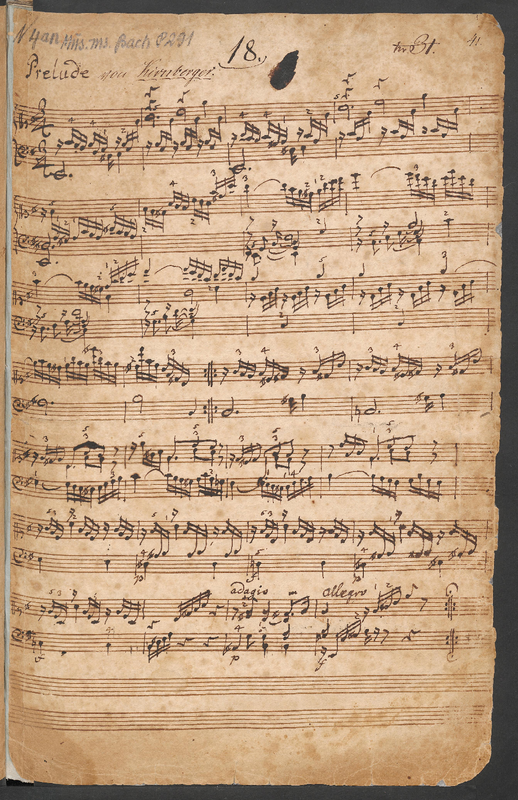 N. Mus. ms. Bach P 291
18.
31.
41
Prelude von Kirnberger.
adagio
allegro